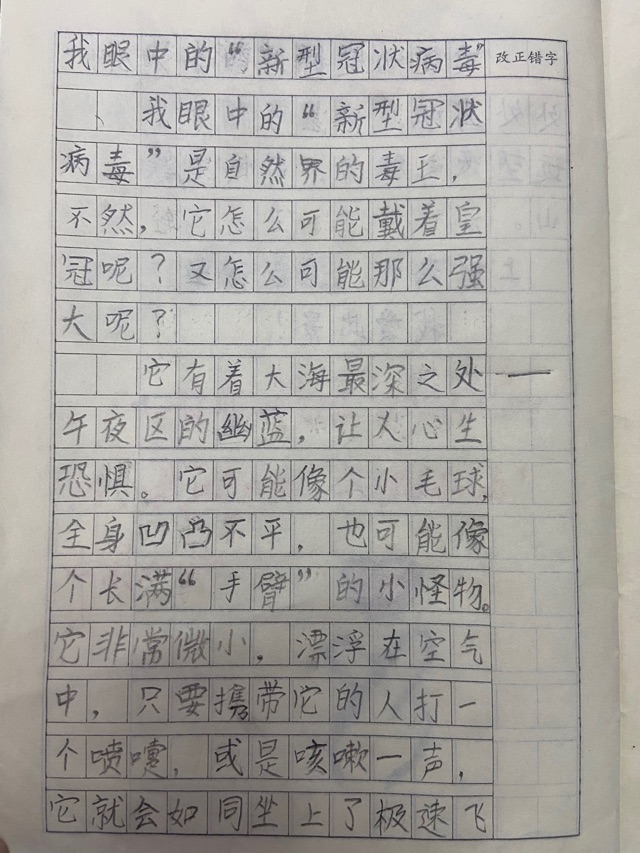 我眼中的“新型冠状病毒” 改正错字
我眼中的“新型冠状
病毒”是自然界的毒王，
不然，它怎么可能戴着皇
冠呢？又怎么可能那么强
大呢？
它有着大海最深之处——
午夜区的幽蓝，让人心生
恐惧。它可能像个小毛球，
全身凹凸不平，也可能像
个长满“手臂”的小怪物。
它非常微小，漂浮在空气
中，只要携带它的人打一
个喷嚏，或是咳嗽一声，
它就会如同坐上了极速飞